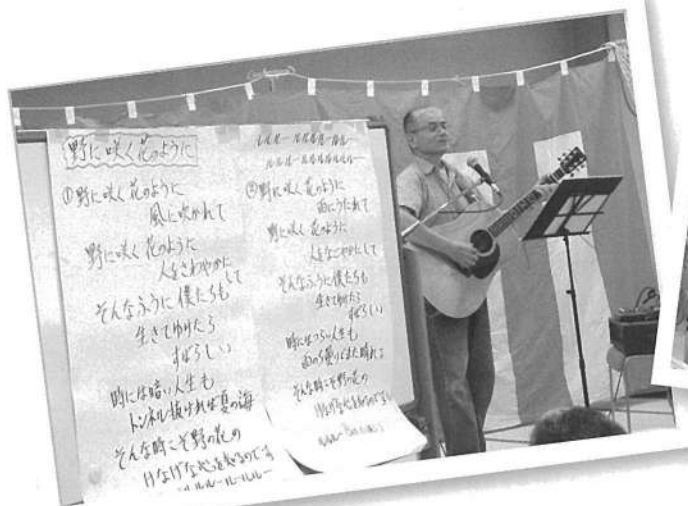 野に咲く花のように
①野に咲く花のように
風に吹かれて
野に咲く花のように
人をさわやかに
して
そんなふうに僕たちも
生きてゆけたら
すばらしい
時には暗い人生も
トンネル抜ければ夏の海
そんな時こそ野の花の
けなげな心を知るのです
ルルル―ルールルー
ルルルールルルルールルー
ルルルールルルルルルー
②野に咲く花のように
雨にうたれて
野に咲く花のように
人をなごやかにして
そんなふうに僕たちも
生きてゆけたら
すばらしい
時にはつらい人生も
雨のち曇りでまた晴れる
そんな時こそ野の花の
けなげな心を知るのです